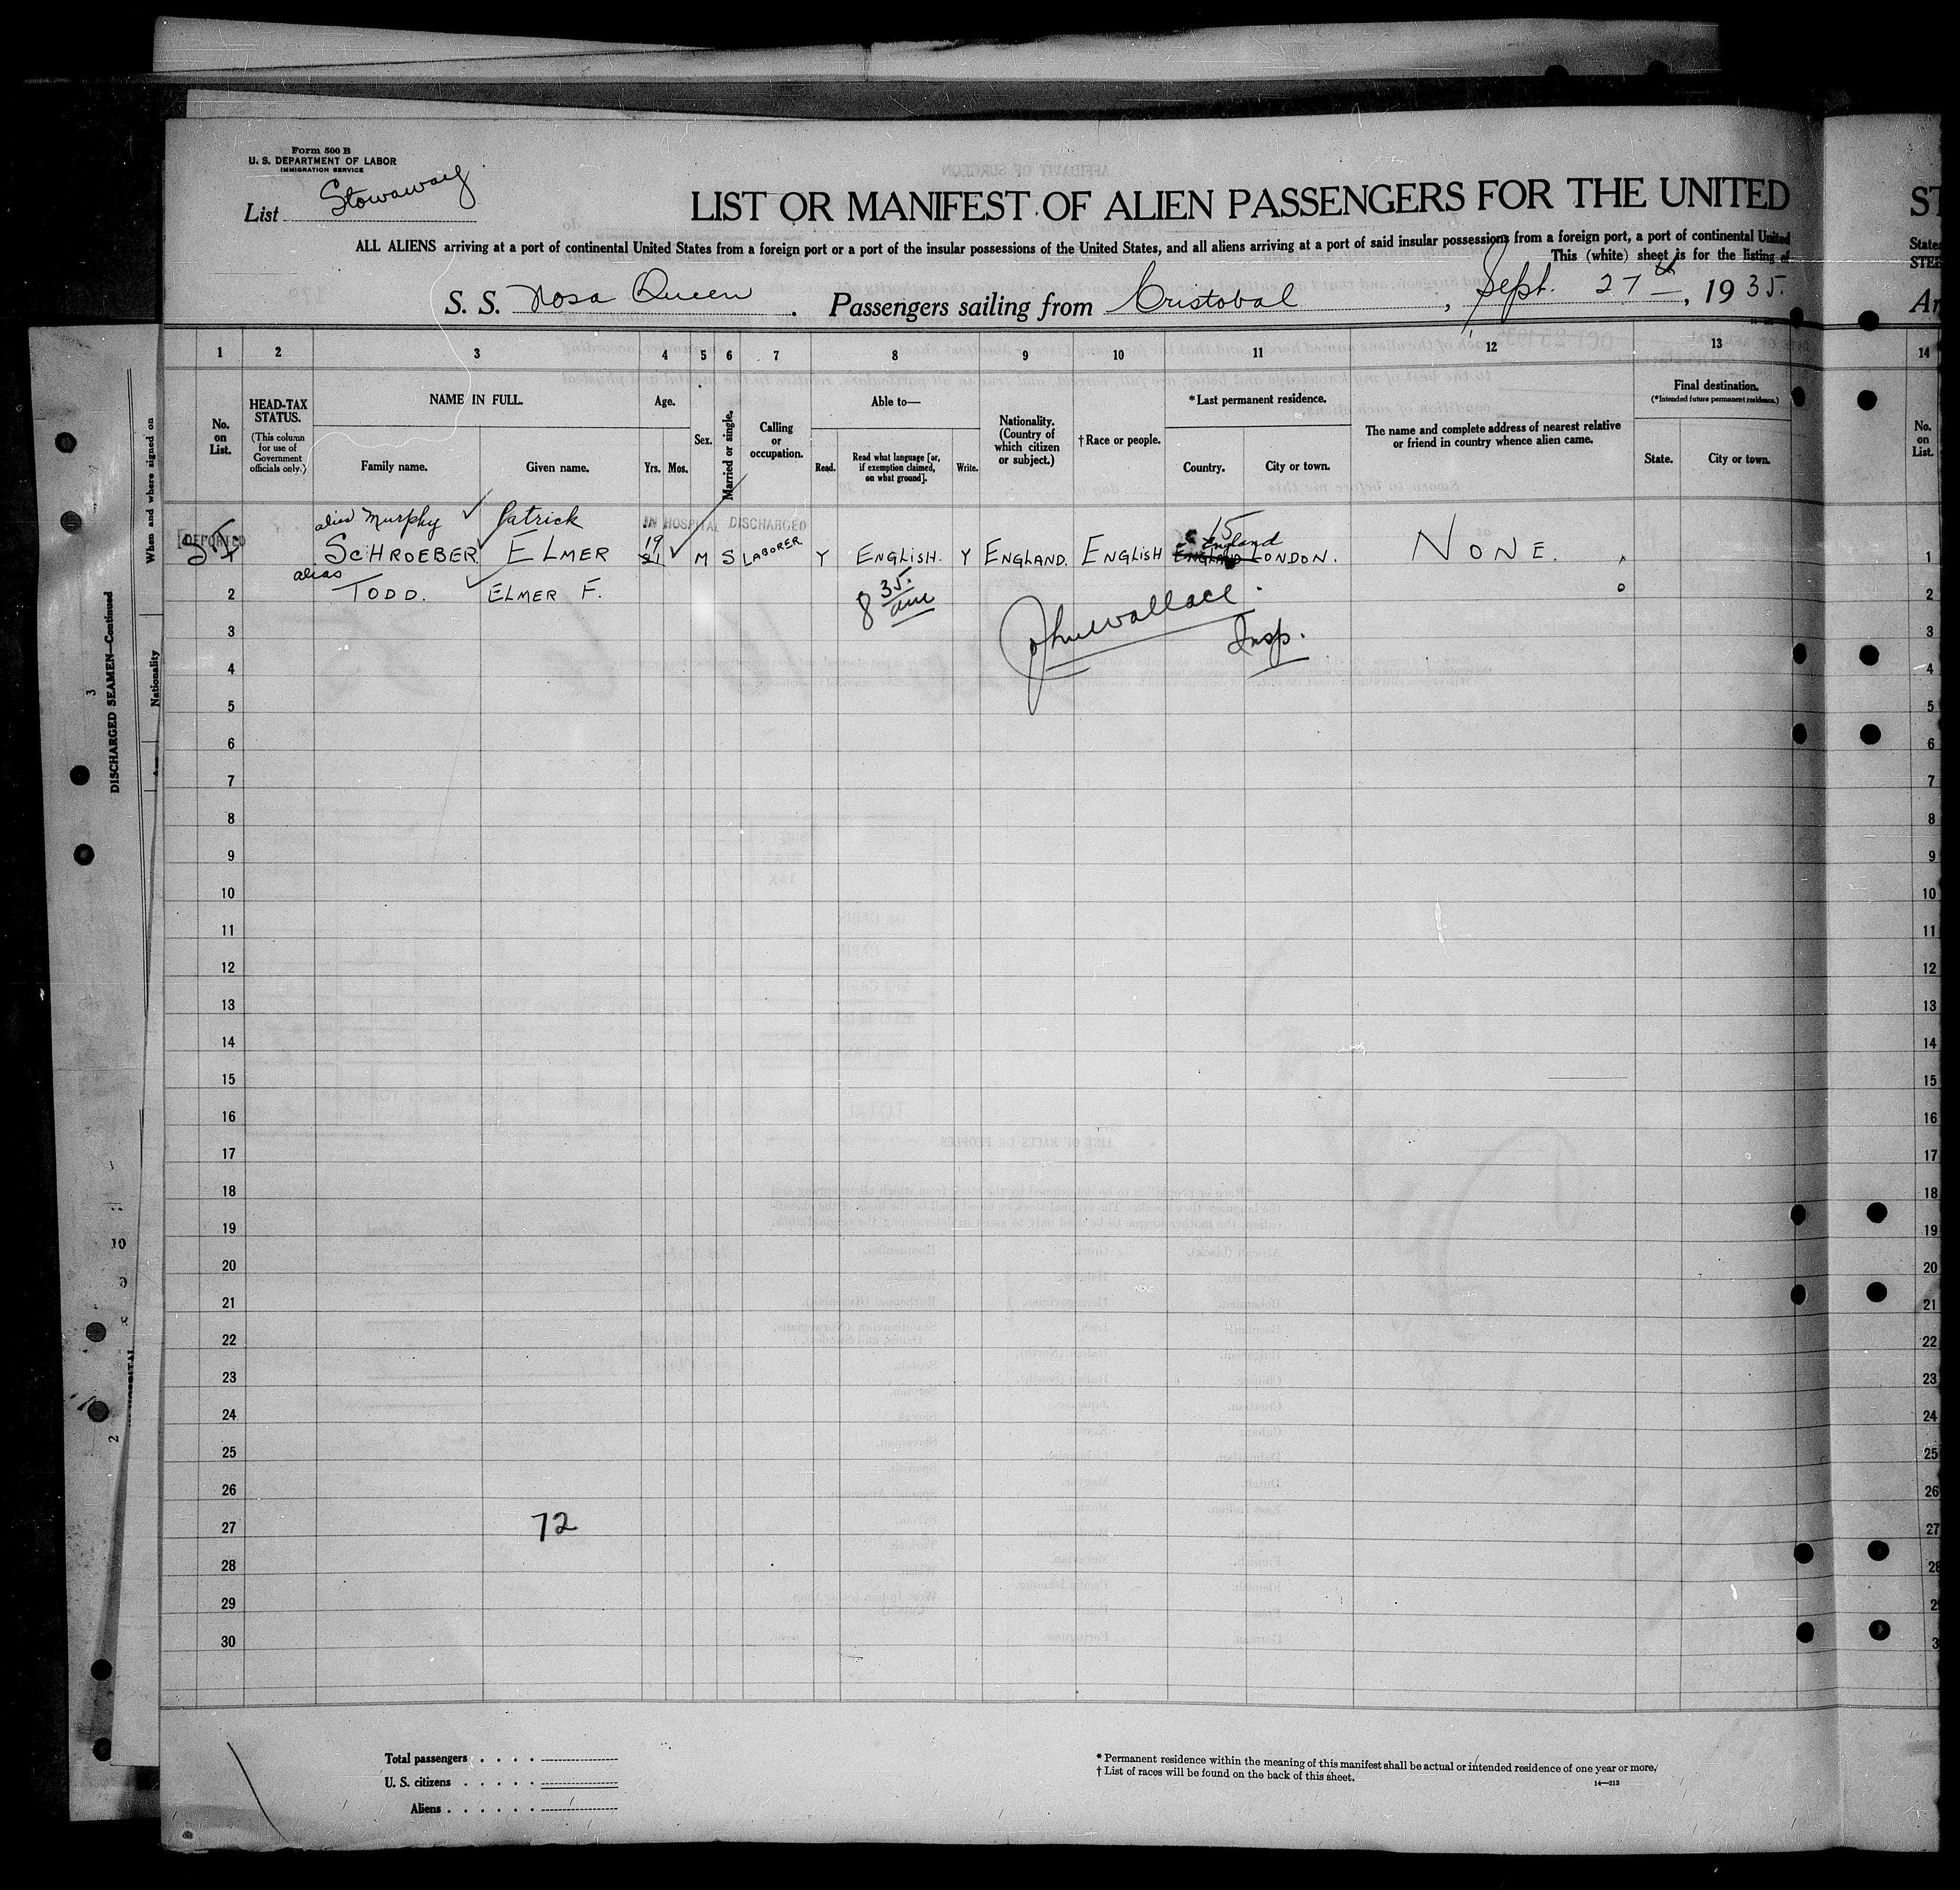 Form 500 B
U. S. DEPARTMENT OF LABOR
IMMIGRATION SERVICE
List Stowaway
LIST OR MANIFEST OF ALIEN PASSENGERS FOR THE UNITED
ST
ALL ALIENS arriving at a port of continental United States from a foreign port or a port of the insular possessions of the United States, and all aliens arriving at a port of said insular possessions from a foreign port, a port of continental United
States
This (white) sheet is for the listing of
STEE
S. S. Nosa Queen . Passengers sailing from Cristobal , Sept. 27th , 1935.
Ar
1 2 3 4 5 6 7 8 9 10 11 12 13 14
No. on List.
HEAD-TAX STATUS.
(This column for use of Government officials only.)
NAME IN FULL.
Family name.
Given name.
Age.
Yrs. Mos.
Sex.
Married or single.
Calling or occupation.
Able to—
Read.
Read what language [or, if exemption claimed, on what ground].
Write.
Nationality. (Country of which citizen or subject.)
†Race or people.
*Last permanent residence.
Country.
City or town.
The name and complete address of nearest relative or friend in country whence alien came.
Final destination.
(*Intended future permanent residence.)
State.
City or town.
No. on List.
alias Murphy Patrick IN HOSPITAL DISCHARGED 15
DEPORTED 19 England
SCHROEBER ELMER 21 M S LABORER Y ENGLISH. Y ENGLAND. ENGLISH ENGLAND LONDON. NONE. 1
alias
2 TODD. ELMER F. 8 35 am 2
John Wallace
3 Insp. 3
4 4
5 5
6 6
7 7
8 8
9 9
10 10
11 11
12 12
13 13
14 14
15 15
16 16
17 17
18 18
19 19
20 20
21 21
22 22
23 23
24 24
25 25
26 26
27 72 27
28 28
29
30
Total passengers
U. S. citizens
Aliens
* Permanent residence within the meaning of this manifest shall be actual or intended residence of one year or more.
† List of races will be found on the back of this sheet.
14—213
When and where signed on
Nationality
DISCHARGED SEAMEN—Continued
3
10
2